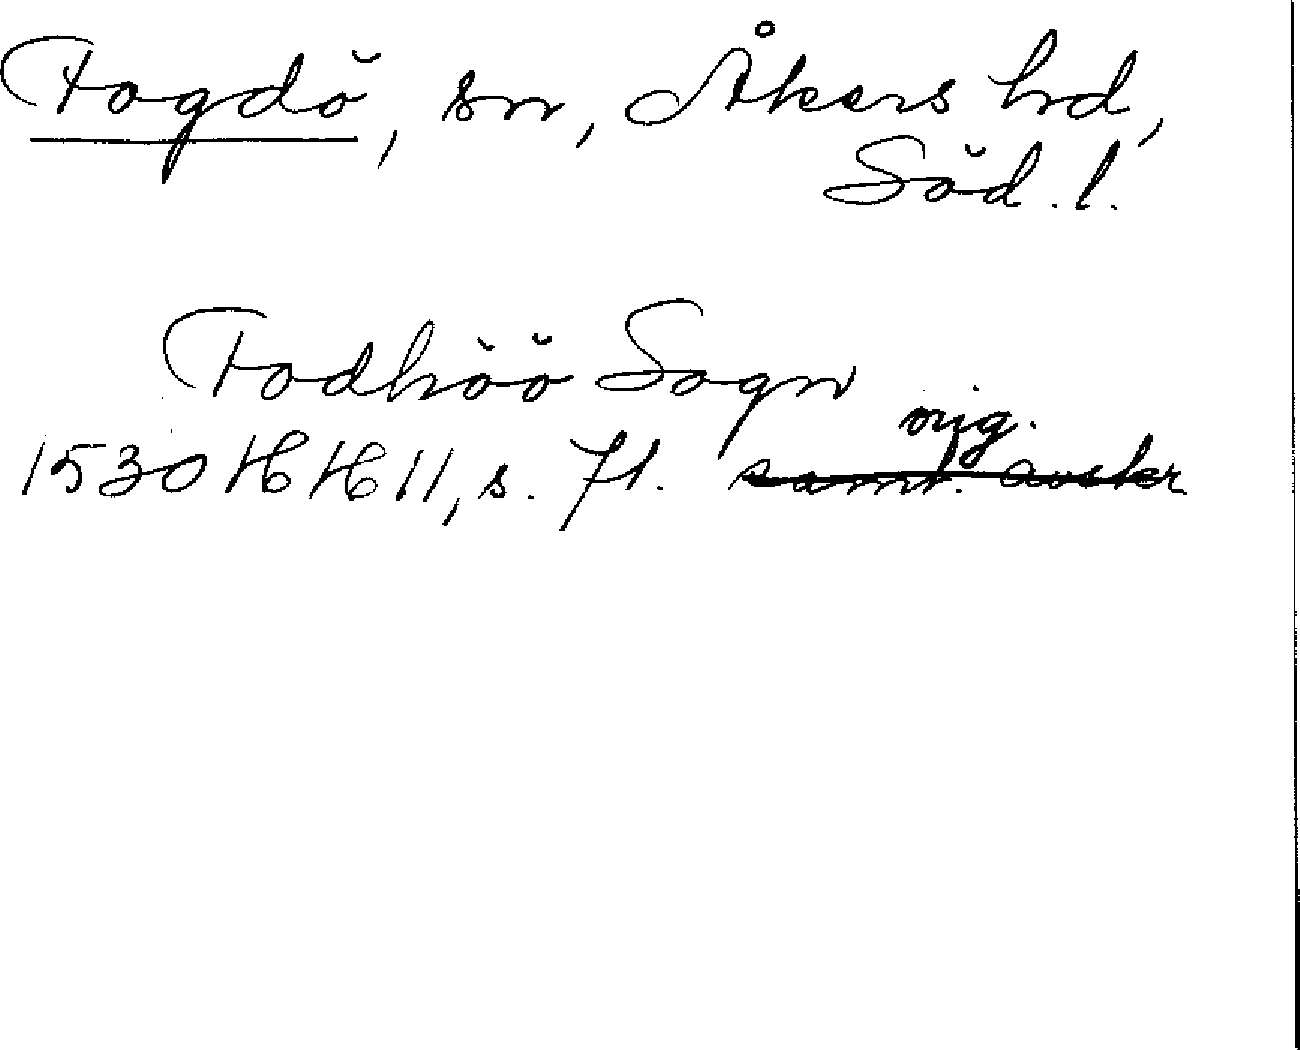 Fogdö, sn, Åkers hd,
Söd. l.
Fodhöö Sogn
orig.
1530 HH 11, s. 71. samt. avskr.